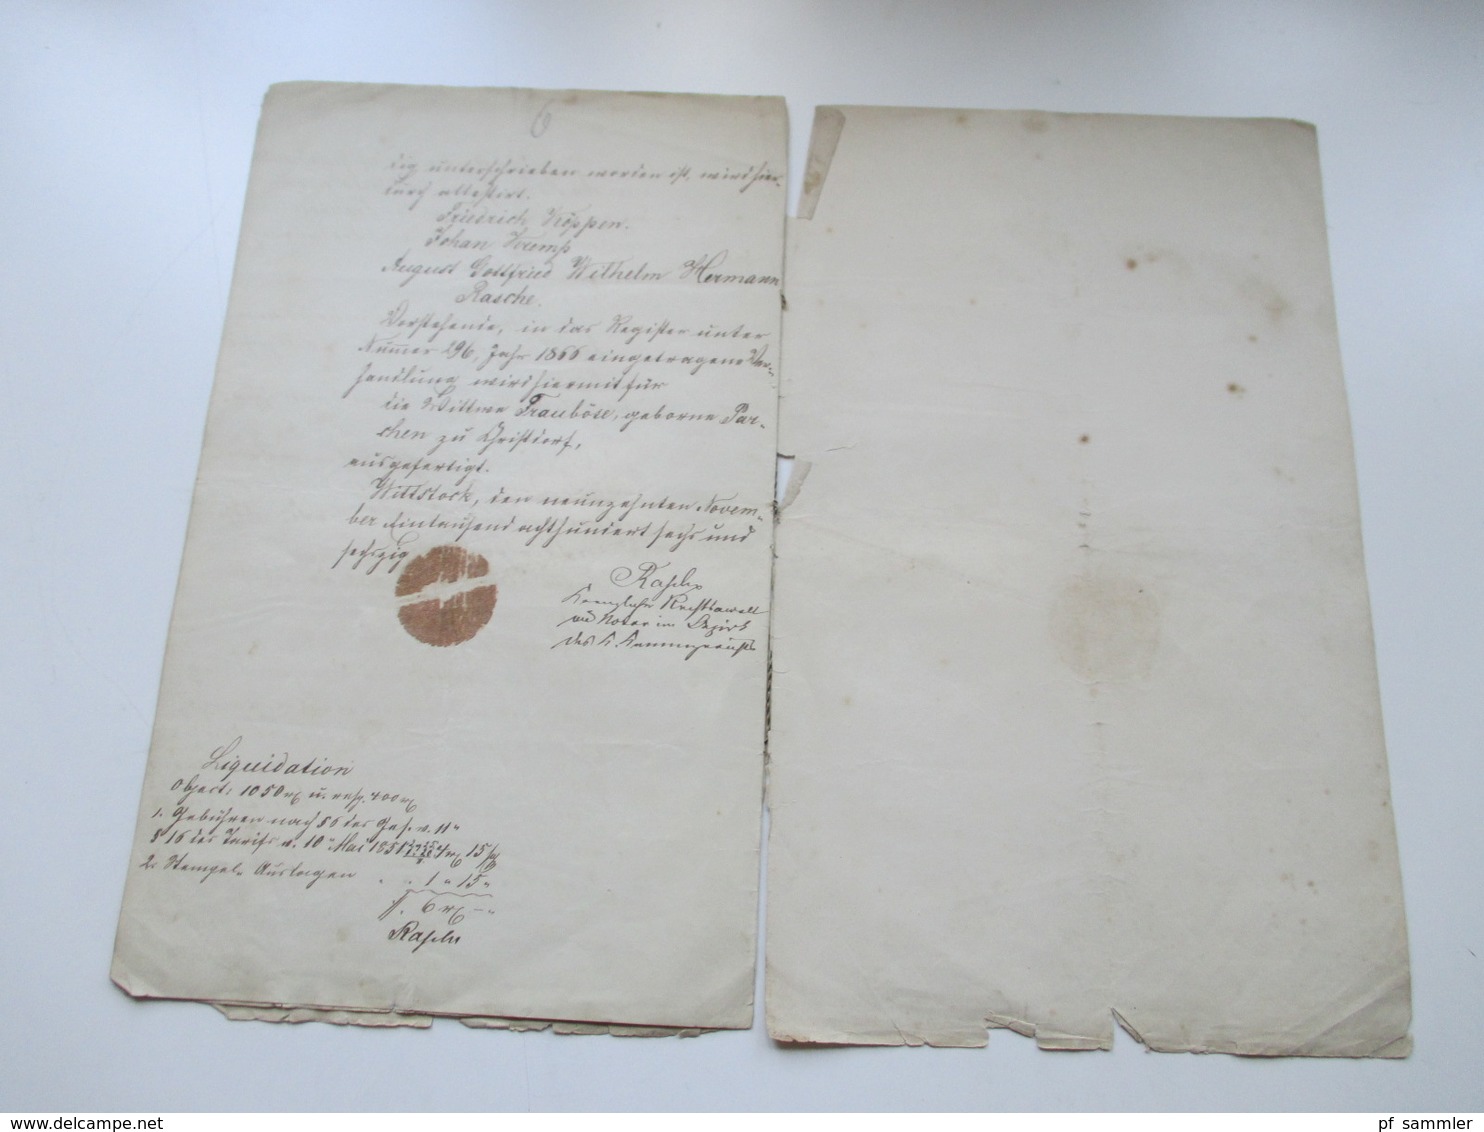 6
dig unterschrieben worden ist, wird hier-
durch attestirt.
Friedrich Köppen.
Johan Kremp
August Gottfried Wilhelm Hermann
Rasche.
Vorstehende, in das Register unter
Nummer 296, Jahr 1866 eingetragene Ver-
handlung wird hiermit für
die Wittwe Frauböse, geborne Par-
chen zu Christdorf,
ausgefertigt.
Wittstock, den neunzehnten Novem-
ber Eintausend achthundert sechs und
sechszig
Rasche
Koenigliche Rechtsanwalt
und Notar im Bezirk
des K. Kammergerichts
Liquidation
Object: 1050 u. resp. 400
1. Gebühren nach § 6 des Ges. v. 11
§ 16 des Tarifs v. 10 Mai 1851 4 15
2. Stempel Auslagen 1 " 15 "
6
Rasche
pf sammler